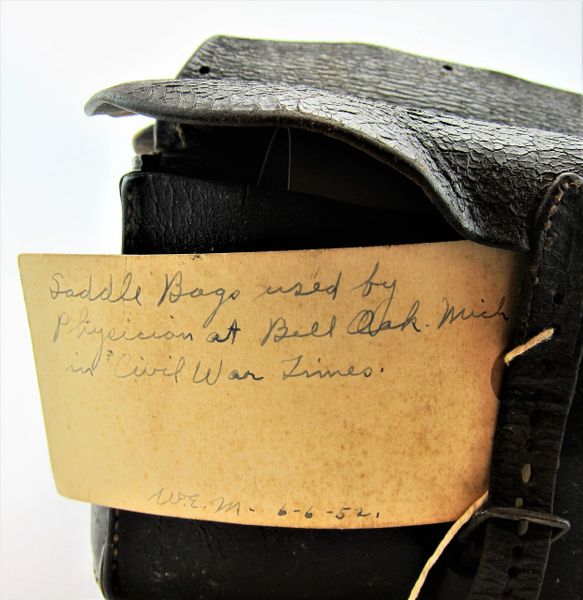 Saddle Bags used by
Physician at Bell Oak. Mich
in Civil War Times.
W.E.M. 6-6-52.